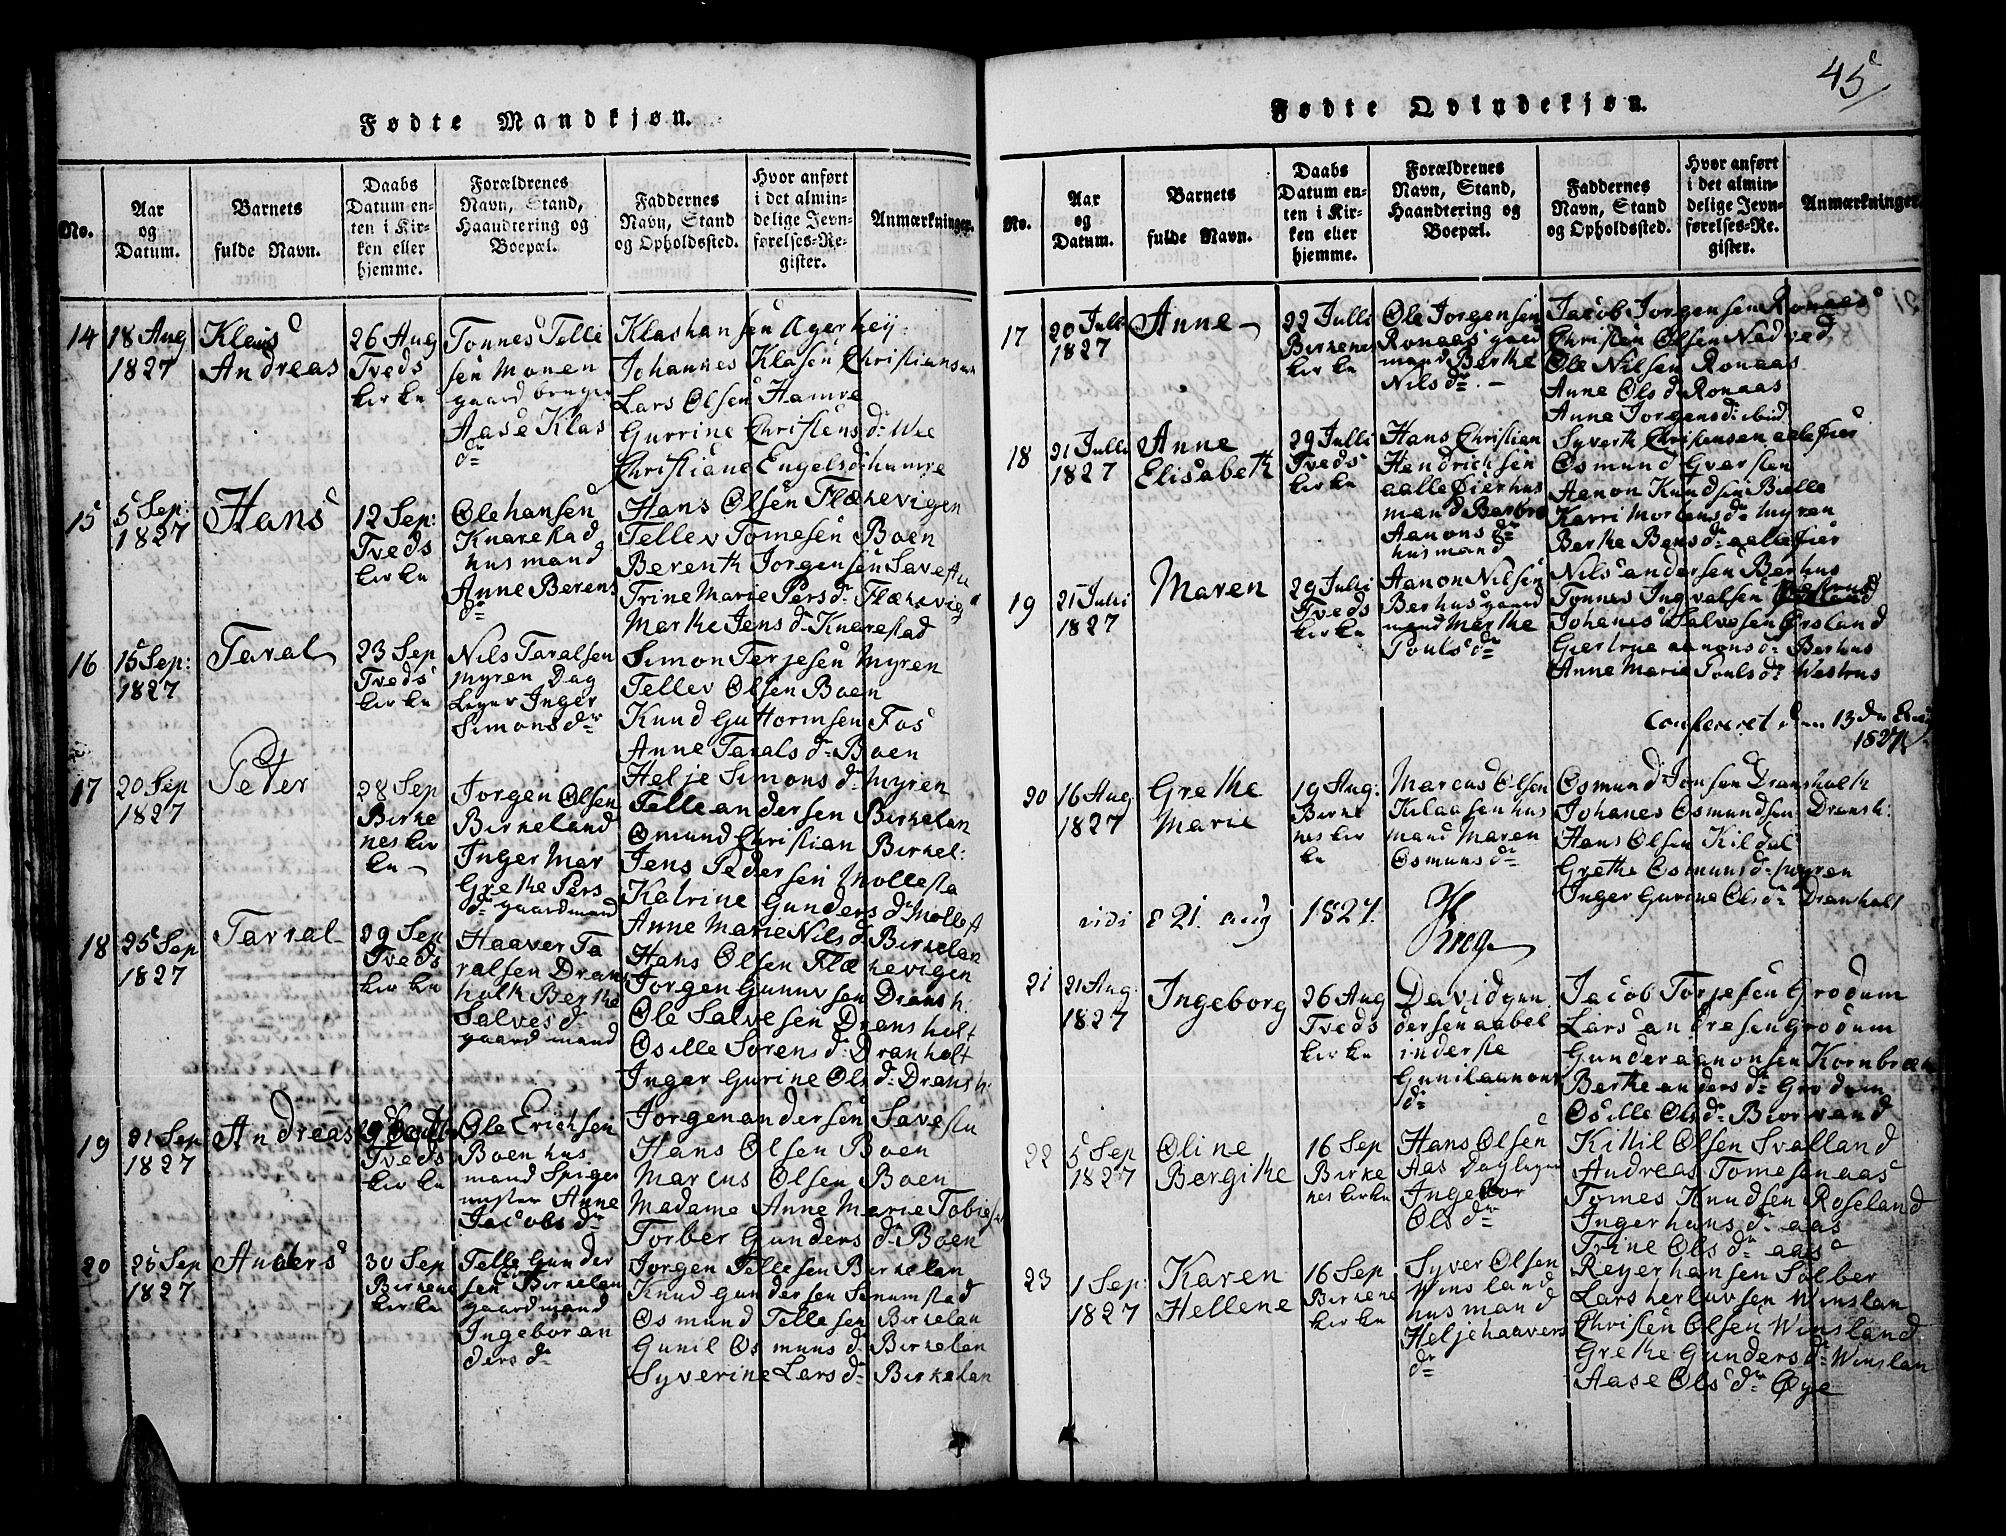 Fødte Mandkjøn.
No.
Aar og Datum.
Barnets fulde Navn.
Daabs Datum enten i Kirken eller hjemme.
Forældrenes Navn, Stand, Haandtering og Boepæl.
Faddernes Navn, Stand og Opholdssted.
Hvor anført i det almindelige Jevnførelses-Register.
Anmærkninger.
14
18 Aug
1827
Klaus
Andreas
26 Aug
Tveds
kirke
Tonnes Telli
sen Monen
gaard bruger
Aase Klas
dr
Klas hansen Ager hey:
Johannes Klasen Christians
Lars Olsen Hamre
Gurrine Christens dr Wee
Christiane Engels dr hamre
15
5 Sep:
1827
Hans
12 Sep:
Tveds
kirke
Ole hansen
Knarestad
husmand
Anne Berens
dr
Hans Olsen Flækevigen
Tellev Tomesen Boen
Berenth Jorgensen Savestu
Trine Marie Pers dr Flækevig
Marthe Jens dr Knarestad
16
15 Sep:
1827
Taral
23 Sep
Tveds
kirke
Nils Taralsen
Myren Dag
leyer Inger
Simons dr
Simon Terjesen Myren
Tellev Olsen Boen
Knud Guttormsen Fos
Anne Tarals dr Boen
Helje Simons dr Myren
17
20 Sep
1827
Peter
28 Sep
Birke
nes kir
ke
Jorgen Olsen
Birkeland
Inger Mar
Grethe Pers
dr gaardmand
Telle andersen Birkelan
Osmund Christian Birkel:
Jens Pedersen Mollesta
Katrine Gunders dr Mollest
Anne Marie Nils d Birkelan
18
25 Sep
1827
Tarral
29 Sep
Tveds
kirke
Haaver Ta
ralsen Drans
holt Berthe
Salves dr
gaardmand
Hans Olsen Flækevigen
Jorgen Gunnersen Dransh:
Ole Salvesen Dransholt
Osille Sorens dr Dranholt
Inger Gurine Ols dr Dransh:
19
21 Sep
1827
Andreas
Tveds
kirke
Ole Erichsen
Boen hus
mand Spiger
mester Anne
Jacobs dr
Jorgen andersen Savestu
Hans Olsen Boen
Marcus Olsen Boen
Madame Anne Marie Tobies
Torber Gunders dr Boen
20
25 Sep
1827
Anders
30 Sep
Birkene
kirke
Telle Gunder
sen Birkelan
gaardmand
Ingebor an
ders dr
Jorgen Tellesen Birkelan
Knud gundersen Senumstad
Osmund Tellesen Birkelan
Gunil Osmuns dr Birkelan
Syverine Lars dr Birkelan
45
Fødte Qvindekjøn.
No.
Aar og Datum.
Barnets fulde Navn.
Daabs Datum enten i Kirken eller hjemme.
Forældrenes Navn, Stand, Haandtering og Boepæl.
Faddernes Navn, Stand og Opholdssted.
Hvor anført i det almindelige Jevnførelses-Register.
Anmærkninger.
17
20 Julli
1827
Anne
22 Julli
Birkenes
kirke
Ole Jorgensen
Ronaas gaard
mand Berthe
Nils dr
Jacob Jorgensen Ronaas
Christen Olsen Nedved
Ole Nilsen Ronaas
Anne Ols d Ronaas
Anne Jorgens dr ibid
18
21 Julli
1827
Anne
Elisabeth
29 Julli
Tveds
kirke
Hans Christian
Hendrichsen
aalle Øier hus
mand Berthe
Aanons dr
husmand
Syverth Christensen aalefier
Osmund Gversten
Aanon Knudsen Bielle
Karri Mortens dr Myren
Berthe Bens dr aalefier
19
21 Julli
1827
Maren
29 Julli
Tveds
kirke
Aanon Nilsen
Berhus gaard
mand Marthe
Pouls dr
Nils andersen Berhus
Tonnes Ingvalsen
Johanes Salvesen Grosland
Giertrue aanons dr Berhus
Anne Marie Pouls dr Westrus
Confereret den 13de Aug
1827
20
16 Aug
1827
Grethe
Marie
19 Aug:
Birke
nes kir
ke
Marcus Olsen
Kilaasen hus
mand Maren
Osmuns dr
Osmund Jonsen Dransholt
Johanes Osmundsen Dransh:
Hans Olsen Kildal
Grethe Osmuns dr Myren
Inger Gurine Ols dr Dranholt
vidi d 21. aug 1827.
21
21 Aug.
1827
Ingeborg
26 Aug
Tveds
kirke
David gun
dersen aabel
inderste
Gunil aanons
dr
Jacob Torjesen Grodum
Lars andresen Grodum
Gunder aanonsen Kornbræk
Berthe anders dr Grodum
Osille Ols dr Biorvand
22
5 Sep
1827
Oline
Bergithe
16 Sep
Birke
nes kirke
Hans Olsen
Aas Dagleyer
Ingebor
Ols dr
Kittil Olsen Svalland
Andreas Tomesen aas
Tomes Knudsen Roseland
Inger hans dr aas
Trine Ols dr aas
23
1 Sep:
1827
Karen
Hellene
16 Sep
Birkene
kirke
Syver Olsen
Winsland
husmand
Helje haavers
dr
Reyer hansen Solber
Lars herluvsen Winslan
Christen Olsen Winsland
Grethe Gunders dr Winslan
Aase Ols dr Øye